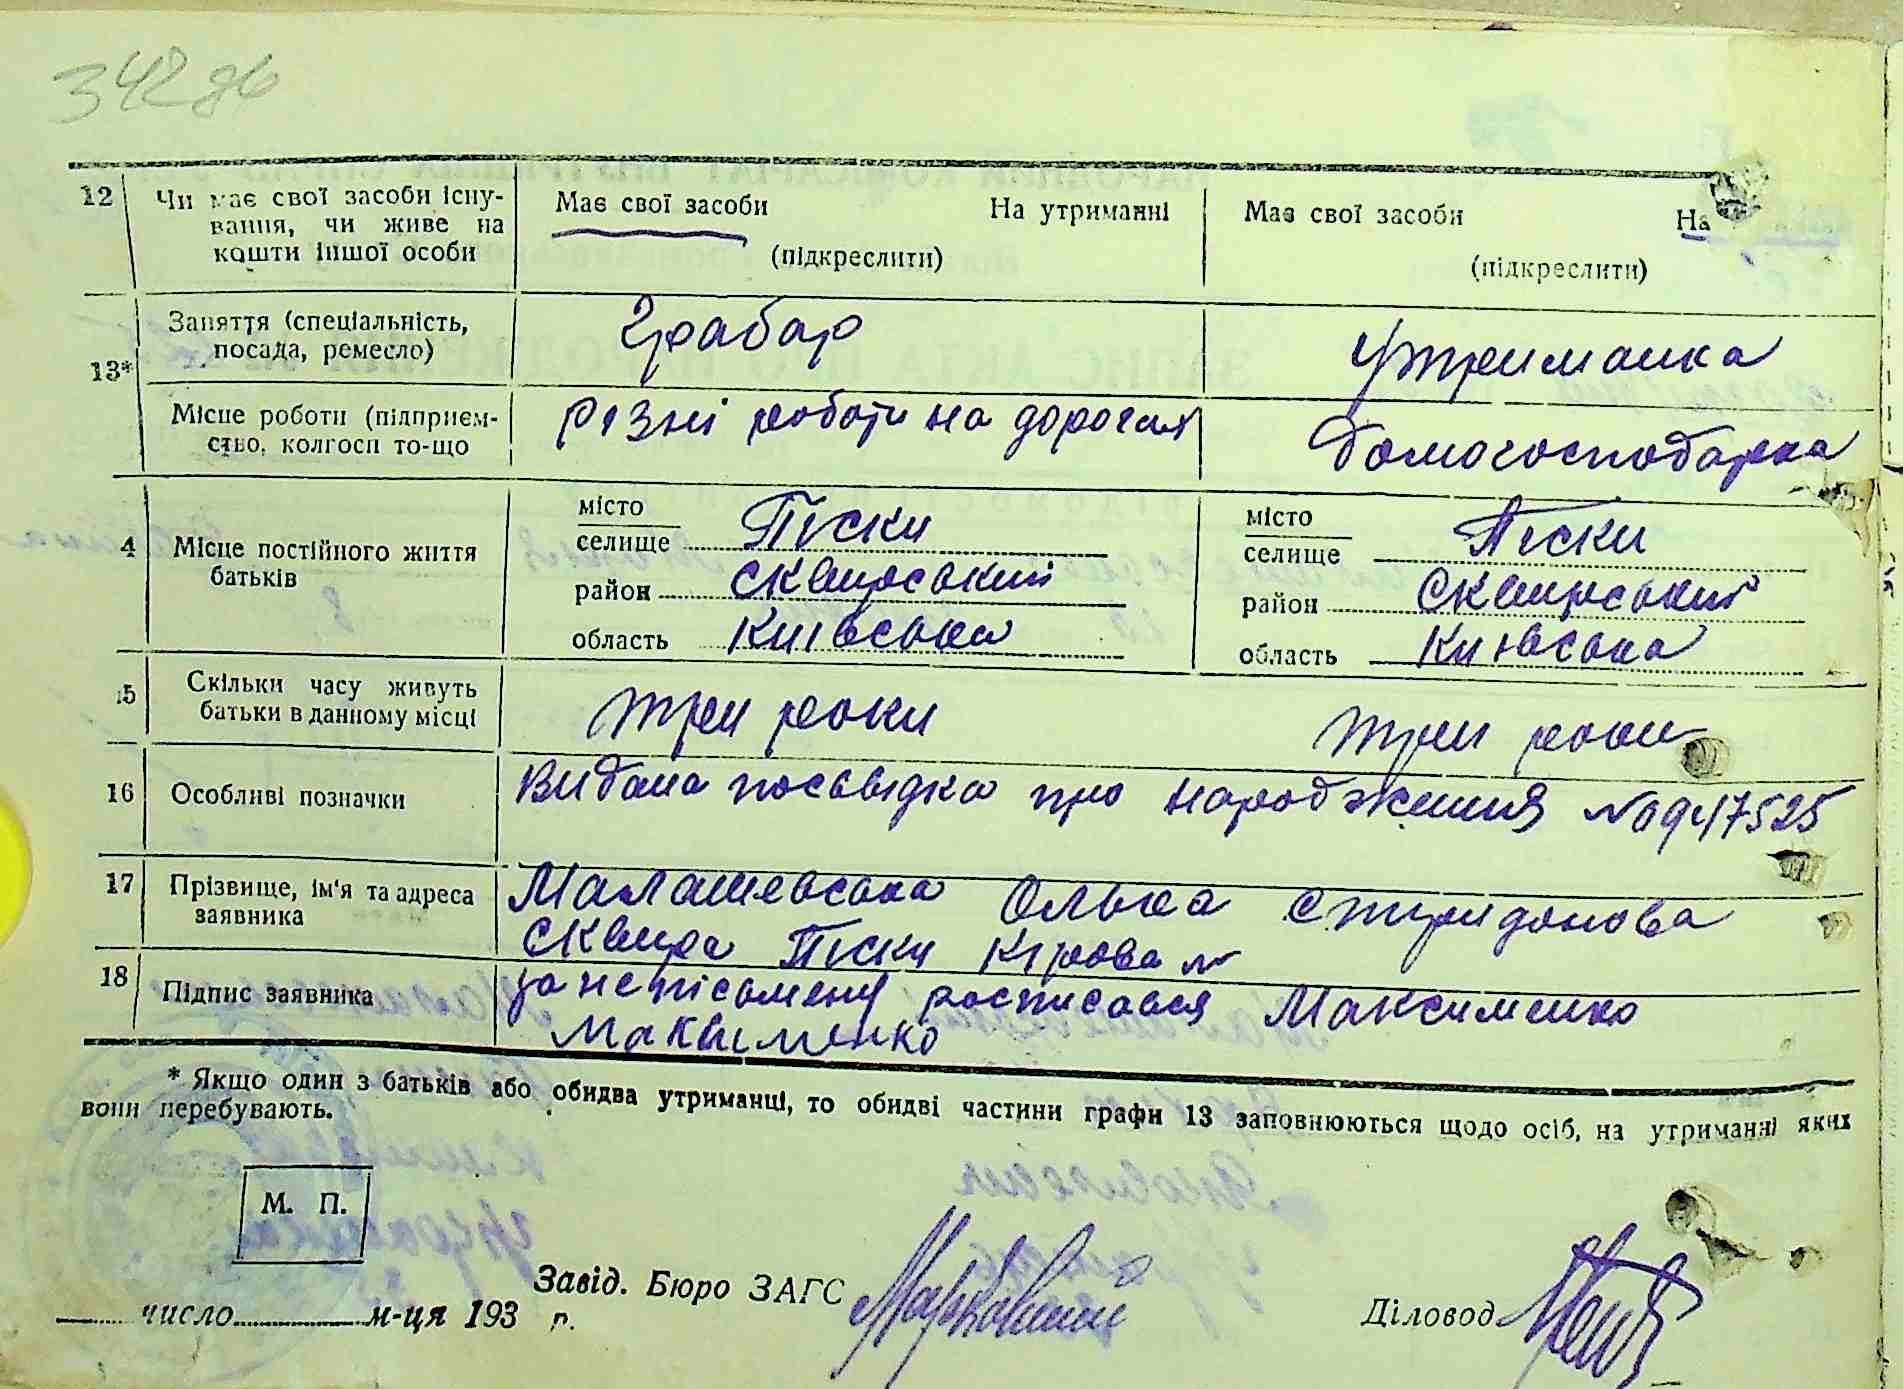 342 зв
12 Чи має свої засоби існу- Має свої засоби На утриманні Має свої засоби На
вання, чи живе на
кошти іншої особи (підкреслити) (підкреслити)
13* Заняття (спеціальність, Грабар Утриманка
посада, ремесло)
Місце роботи (підприєм- Різні роботи на дорогах Домогосподарка
ство, колгосп то-що
4 Місце постійного життя місто місто
батьків селище Піски селище Піски
район Сквирський район Сквирський
область Київська область Київська
15 Скільки часу живуть три роки три роки
батьки в данному місці
16 Особливі позначки Видана посвідка про народження № 0947525
17 Прізвище, ім'я та адреса Малашевська Ольга Спиридонова
заявника Сквира Піски Кірова №
18 Підпис заявника за неписьмену росписався Максименко
Максименко
* Якщо один з батьків або обидва утриманці, то обидві частини графи 13 заповнюються щодо осіб, на утриманні яких
вони перебувають.
М. П.
Завід. Бюро ЗАГС
число м-ця 193 р. Діловод